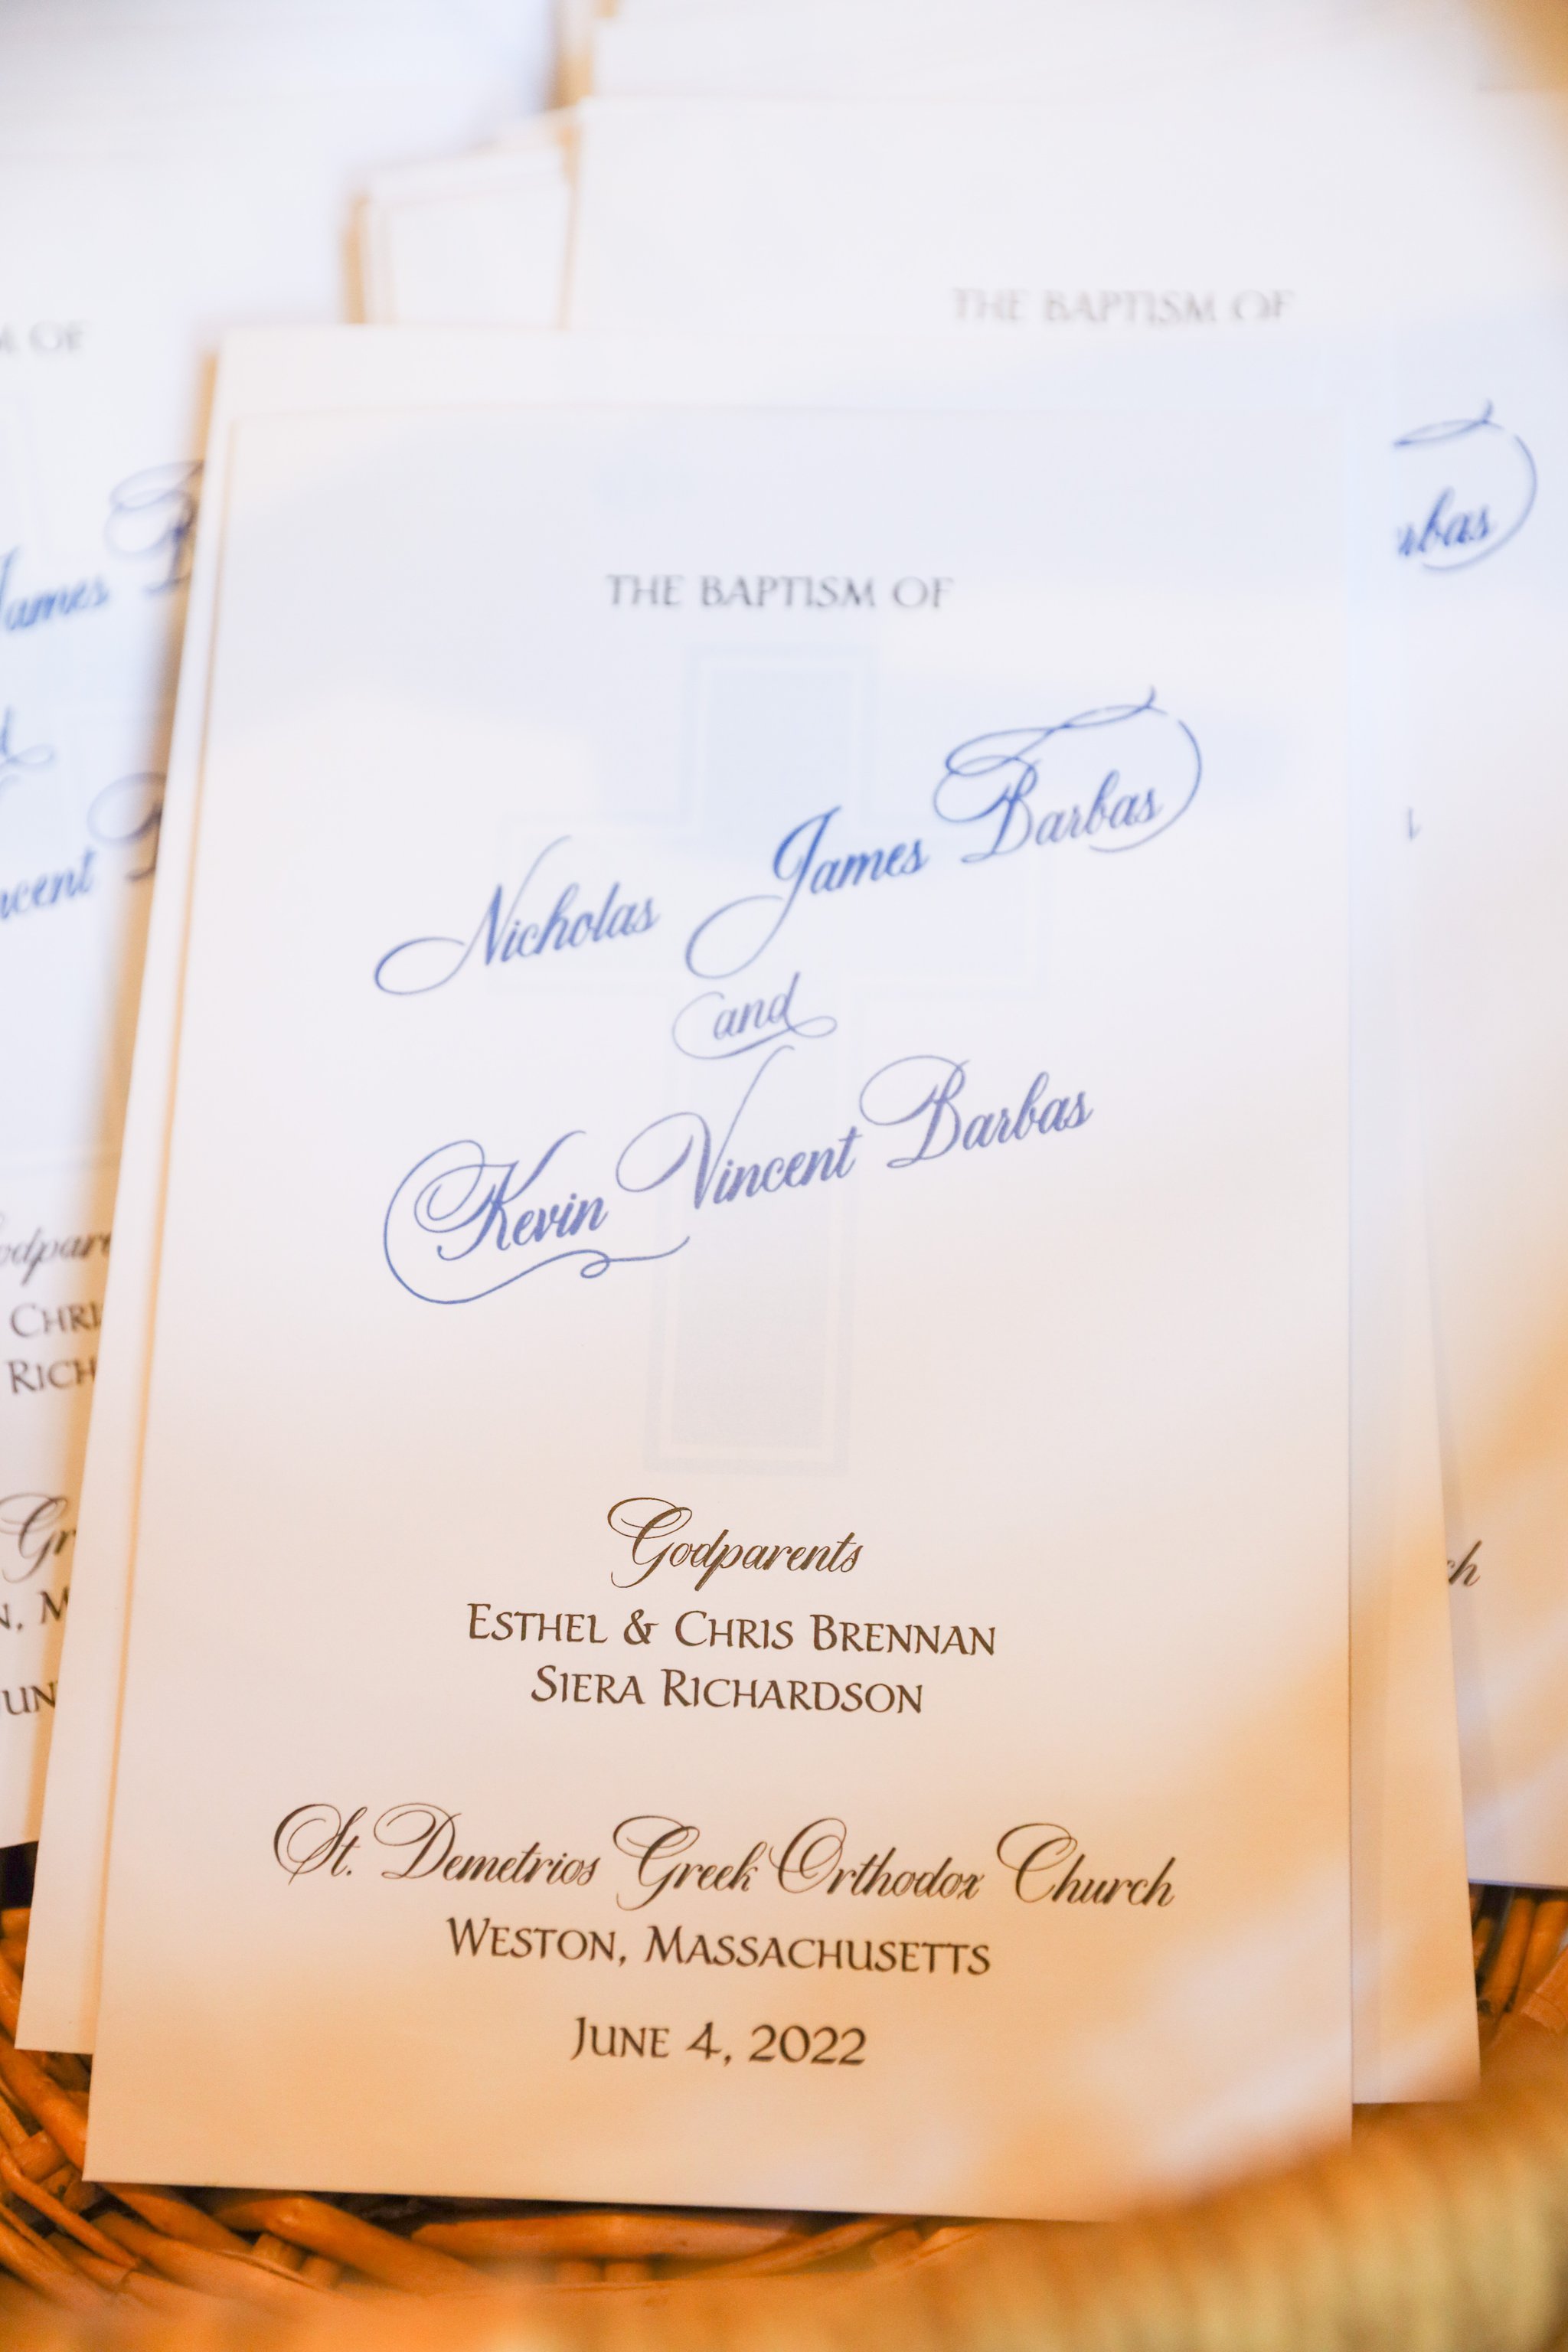 THE BAPTISM OF
Nicholas James Barbas
and
Kevin Vincent Barbas
Godparents
ESTHEL & CHRIS BRENNAN
SIERA RICHARDSON
St. Demetrios Greek Orthodox Church
WESTON, MASSACHUSETTS
JUNE 4, 2022
THE BAPTISM OF
OF
James